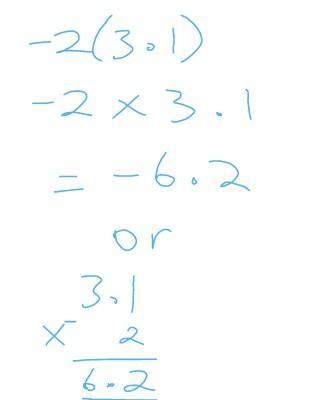 -2(3.1)
-2 × 3.1
= -6.2
or
3.1
×- 2
6.2